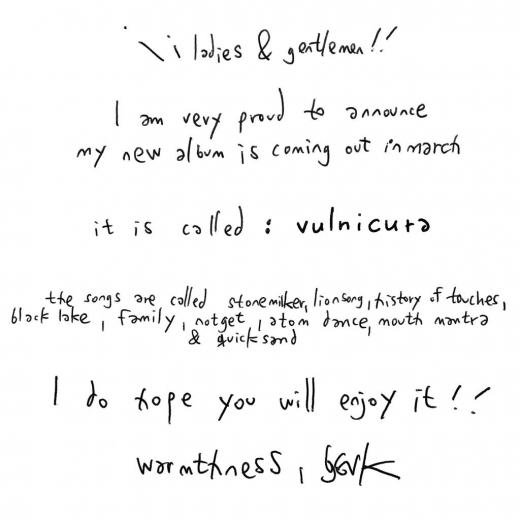 ¡¡ ladies & gentlemen!!
I am very proud to announce
my new album is coming out in march
it is called : vulnicura
the songs are called stonemilker, lionsong, history of touches,
black lake, family, notget, atom dance, mouth mantra
& quicksand
I do hope you will enjoy it!!
warmthness, björk